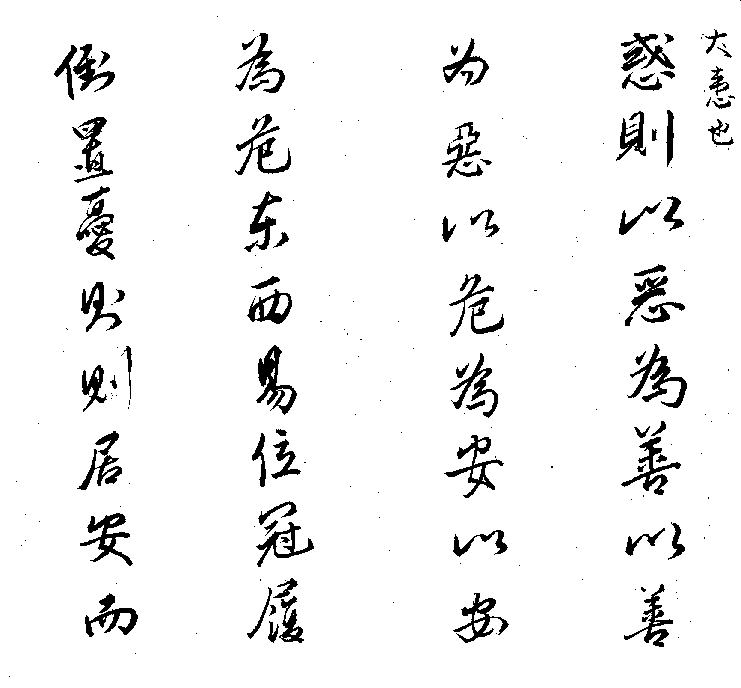 大患也
惑則以惡為善以善
為惡以危為安以安
為危东西易位冠履
倒置憂則則居安而